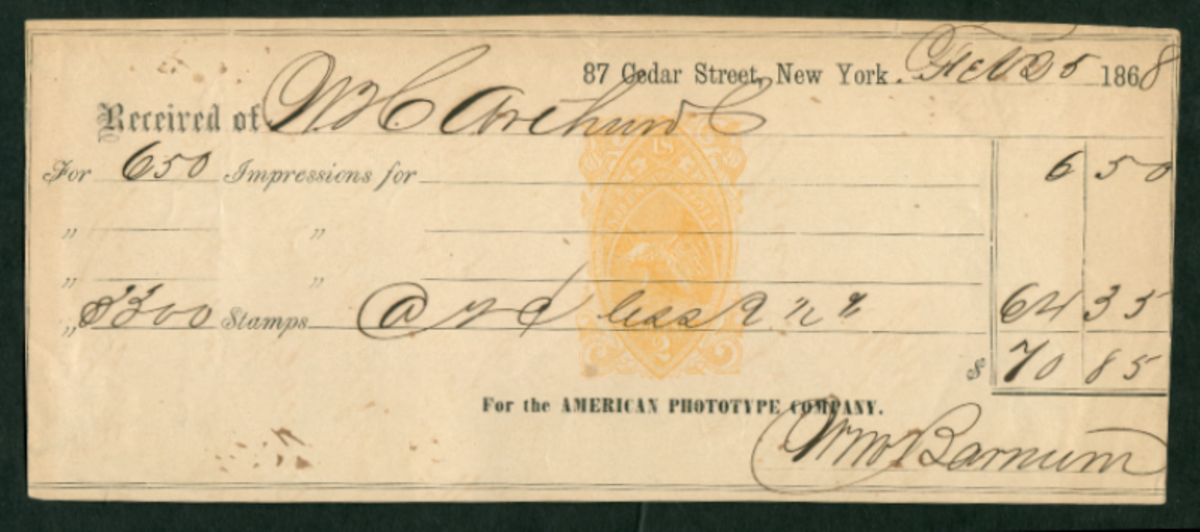 87 Cedar Street, New York. Feb 25 1868
Received of W H C Arthur & C
For 650 Impressions for 6 50
" "
" "
" 3300 Stamps @ 2 ¢ less 2 ½ % 64 35
$ 70 85
U S
2
For the AMERICAN PHOTOTYPE COMPANY.
Wm Barnum